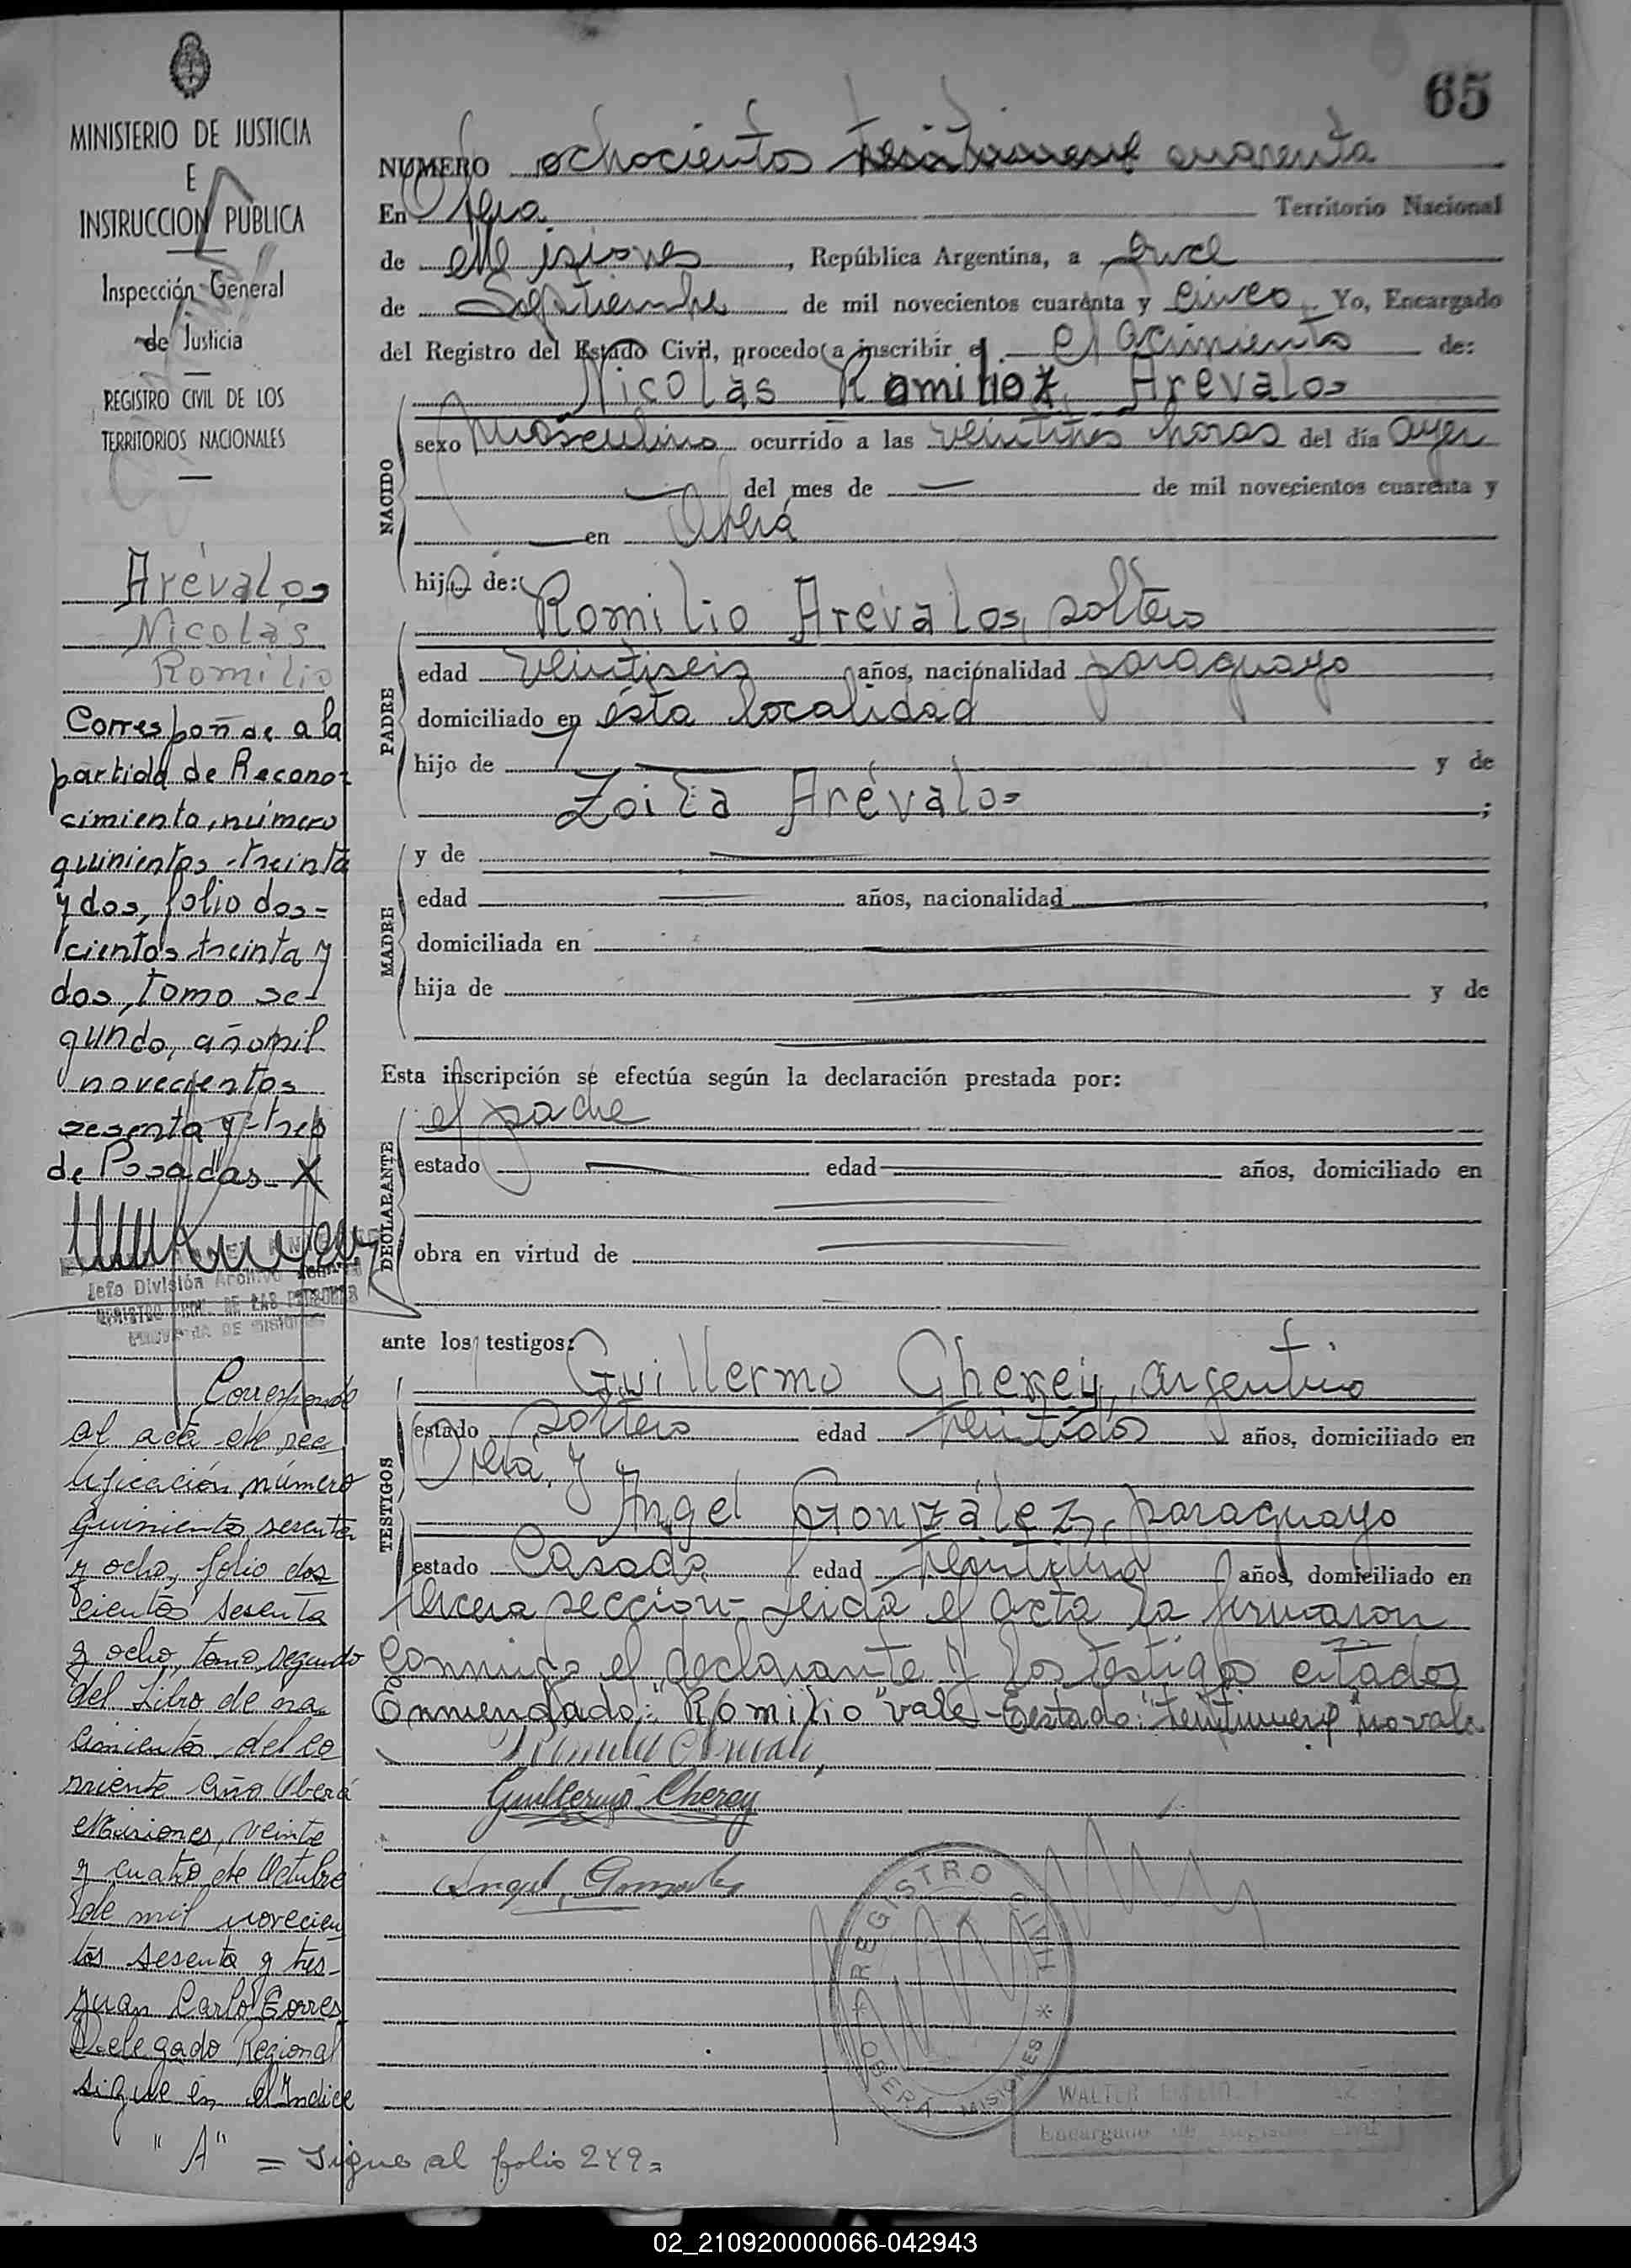 65
MINISTERIO DE JUSTICIA
E
INSTRUCCION PUBLICA
Inspección General
de Justicia
REGISTRO CIVIL DE LOS
TERRITORIOS NACIONALES
Arévalos
Nicolás
Romilio
Correspon de a la
partida de Recono-
cimiento, número
quinientos treinta
y dos, folio dos=
cientos treinta y
dos, Tomo se-
gundo, año mil
novecientos
sesenta y tres
de Posadas X
Jefe División Archivo
REGISTRO PROV. DE LAS PERSONAS
PROVINCIA DE MISIONES
Corresponde
al acta de rec
tificación número
quinientos sesenta
y ocho, folio dos
cientos sesenta
y ocho, tomo segundo
del Libro de na
cimientos del co
rriente año Oberá
Misiones, veinte
y cuatro de Octubre
de mil novecien
tos sesenta y tres-
Juan Carlo Torres
Delegado Regional
sigue en el Indice
"A" = Sigue al folio 249=
NUMERO ochocientos cuarenta
En Obera Territorio Nacional
de Misiones, República Argentina, a once
de Septiembre de mil novecientos cuarenta y cinco. Yo, Encargado
del Registro del Estado Civil, procedo a inscribir el nacimiento de:
Nicolás Arévalos
NACIDO
sexo masculino ocurrido a las horas del día ayer
del mes de — de mil novecientos cuarenta y
— en Oberá
hijo de:
PADRE
Romilio Arévalos, soltero
edad veintiseis años, nacionalidad paraguayo
domiciliado en ésta localidad
hijo de — y de
Zoila Arévalos ;
MADRE
y de —
edad — años, nacionalidad —
domiciliada en —
hija de — y de
—
Esta inscripción se efectúa según la declaración prestada por:
DECLARANTE
el padre
estado — edad — años, domiciliado en
—
obra en virtud de —
ante los testigos:
TESTIGOS
Guillermo Cherey, argentino
estado soltero edad años, domiciliado en
Obera, y
Angel González, paraguayo
estado Casado edad años, domiciliado en
tercera sección. Leida el acta la firmaron
conmigo el declarante y los testigos citados
Enmendado: "Romilio" vale - Testado: no vale
Guillermo Cherey
Angel Gonzalez
REGISTRO CIVIL
* OBERA - MISIONES *
WALTER
Encargado de Registro Civil
02_210920000066-042943